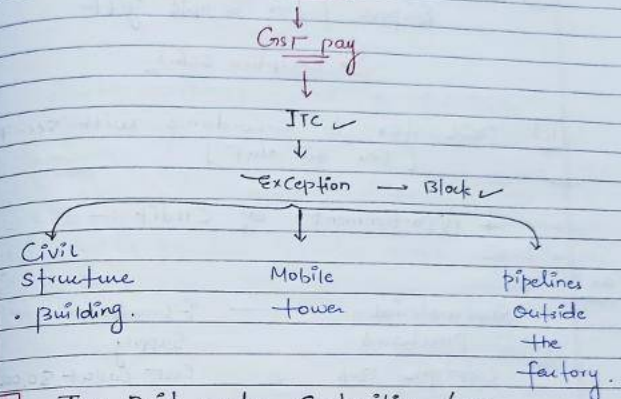 GST pay
ITC ✓
Exception → Block ✓
Civil
Structure
• Building.
Mobile
tower
pipelines
outside
the
factory.